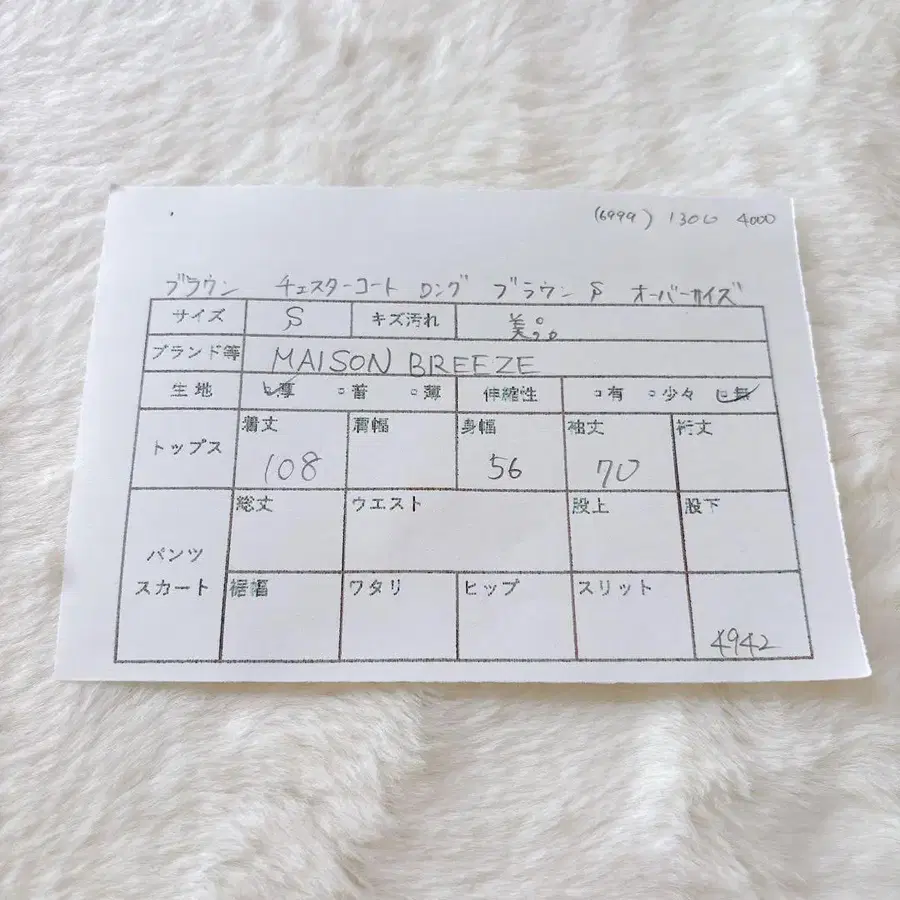 (6999) 1300 4000
ブラウン チェスターコート ロング ブラウン S オーバーサイズ
サイズ S キズ汚れ 美品
ブランド等 MAISON BREEZE
生地 厚 普 薄 伸縮性 有 少々 無
トップス 着丈 肩幅 身幅 袖丈 裄丈
108 56 70
総丈 ウエスト 股上 股下
パンツ
スカート 裾幅 ワタリ ヒップ スリット
4942